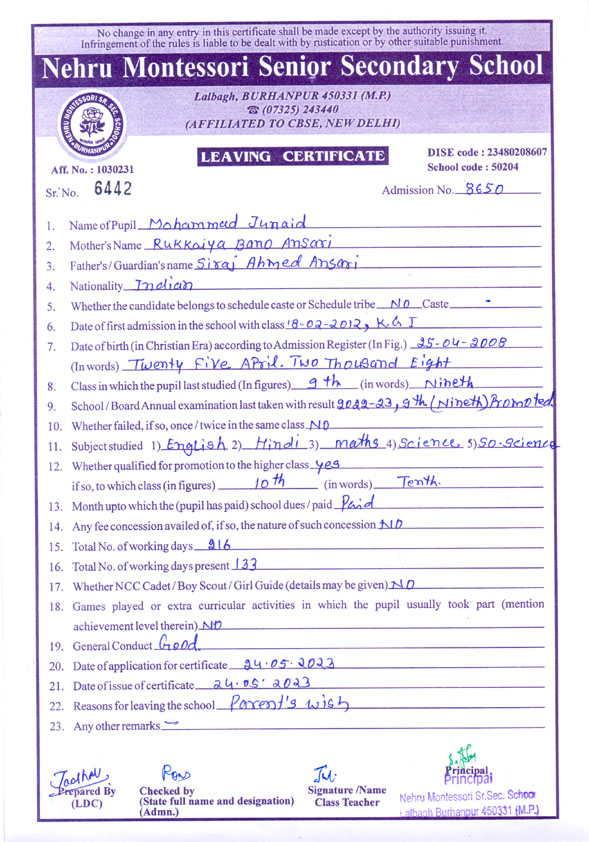 No change in any entry in this certificate shall be made except by the authority issuing it.
Infringement of the rules is liable to be dealt with by rustication or by other suitable punishment.
Nehru Montessori Senior Secondary School
Lalbagh, BURHANPUR 450331 (M.P.)
☎ (07325) 243440
(AFFILIATED TO CBSE, NEW DELHI)
NEHRU MONTESSORI SR. SEC. SCHOOL
BURHANPUR
LEAVING CERTIFICATE
DISE code : 23480208607
School code : 50204
Aff. No. : 1030231
Sr. No. 6442
Admission No. 8650
1. Name of Pupil Mohammad Junaid
2. Mother's Name Rukkaiya Bano Ansari
3. Father's / Guardian's name Siraj Ahmed Ansari
4. Nationality Indian
5. Whether the candidate belongs to schedule caste or Schedule tribe NO Caste -
6. Date of first admission in the school with class 18-02-2012, K.G I
7. Date of birth (in Christian Era) according to Admission Register (In Fig.) 25-04-2008
(In words) Twenty Five April. Two Thousand Eight
8. Class in which the pupil last studied (In figures) 9th (in words) Nineth
9. School / Board Annual examination last taken with result 2022-23, 9th (Nineth) Promoted
10. Whether failed, if so, once / twice in the same class NO
11. Subject studied 1) English 2) Hindi 3) maths 4) Science 5) SO-Science
12. Whether qualified for promotion to the higher class yes
if so, to which class (in figures) 10th (in words) Tenth.
13. Month upto which the (pupil has paid) school dues / paid Paid
14. Any fee concession availed of, if so, the nature of such concession NO
15. Total No. of working days 216
16. Total No. of working days present 133
17. Whether NCC Cadet / Boy Scout / Girl Guide (details may be given) NO
18. Games played or extra curricular activities in which the pupil usually took part (mention
achievement level therein) NO
19. General Conduct Good
20. Date of application for certificate 24.05.2023
21. Date of issue of certificate 24.05.2023
22. Reasons for leaving the school Parent's wish
23. Any other remarks -
Prepared By
(LDC)
Checked by
(State full name and designation)
(Admn.)
Signature /Name
Class Teacher
Principal
Principal
Nehru Montessori Sr.Sec. School
Lalbagh Burhanpur 450331 (M.P.)